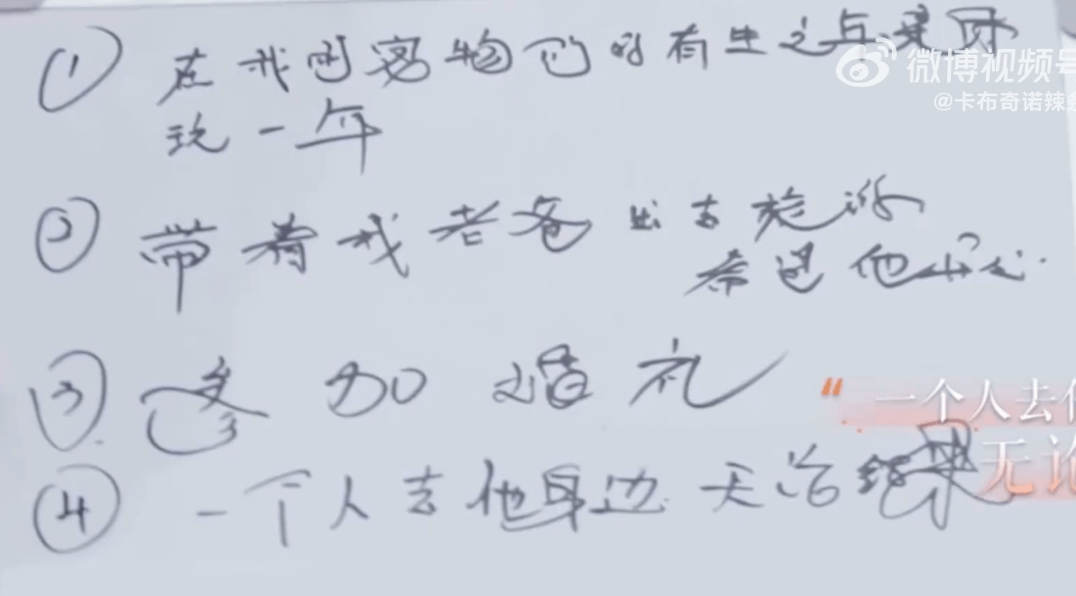 ① 在我的宠物们的有生之年里陪
玩一年
② 带着我老爸出去旅游
希望他开心.
③ 参加婚礼
④ 一个人去他身边 无论结果
微博视频号
@卡布奇诺辣
“一个人去他
无论